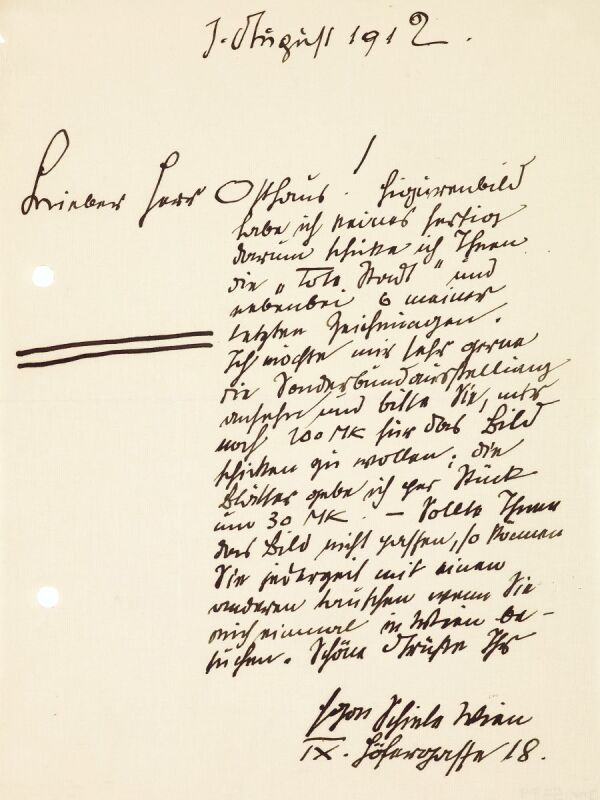 1. August 1912.
Lieber Herr Osthaus! Figurenbild
habe ich keines fertig
darum schicke ich Ihnen
die „Tote Stadt" und
nebenbei 6 meiner
letzten Zeichnungen.
Ich möchte mir sehr gerne
die Sonderbundausstellung
ansehn und bitte Sie, mir
noch 200 MK für das Bild
schicken zu wollen; die
Blätter gebe ich per Stück
um 30 MK. – Sollte Ihnen
das Bild nicht passen, so können
Sie jederzeit mit einen
anderen tauschen wenn Sie
mich einmal in Wien be-
suchen. Schöne Grüße Ihr
Egon Schiele Wien
IX. Höfergasse 18.